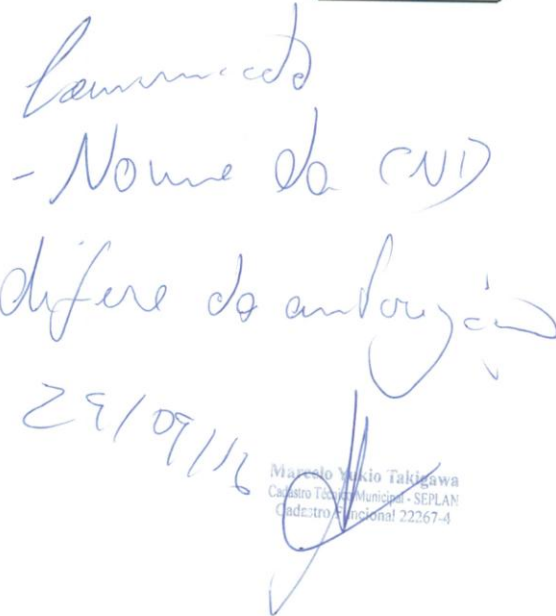 Comunicado
- Nome da CND
difere da autorização
29/09/16
Marcelo Yukio Takigawa
Cadastro Técnico Municipal - SEPLAN
Cadastro Funcional 22267-4